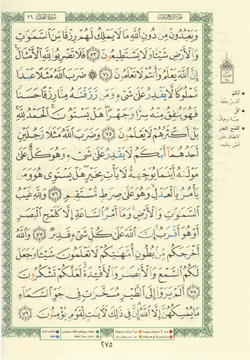 سورة النحل ١٦
وَيَعْبُدُونَ مِن دُونِ ٱللَّهِ مَا لَا يَمْلِكُ لَهُمْ رِزْقًا مِّنَ ٱلسَّمَٰوَٰتِ
وَٱلْأَرْضِ شَيْـًٔا وَلَا يَسْتَطِيعُونَ ٧٣ فَلَا تَضْرِبُوا۟ لِلَّهِ ٱلْأَمْثَالَ
إِنَّ ٱللَّهَ يَعْلَمُ وَأَنتُمْ لَا تَعْلَمُونَ ٧٤ ضَرَبَ ٱللَّهُ مَثَلًا عَبْدًا
مَّمْلُوكًا لَّا يَقْدِرُ عَلَىٰ شَىْءٍ وَمَن رَّزَقْنَٰهُ مِنَّا رِزْقًا حَسَنًا
فَهُوَ يُنفِقُ مِنْهُ سِرًّا وَجَهْرًا هَلْ يَسْتَوُۥنَ ٱلْحَمْدُ لِلَّهِ
بَلْ أَكْثَرُهُمْ لَا يَعْلَمُونَ ٧٥ وَضَرَبَ ٱللَّهُ مَثَلًا رَّجُلَيْنِ
أَحَدُهُمَآ أَبْكَمُ لَا يَقْدِرُ عَلَىٰ شَىْءٍ وَهُوَ كَلٌّ عَلَىٰ
مَوْلَىٰهُ أَيْنَمَا يُوَجِّههُّ لَا يَأْتِ بِخَيْرٍ هَلْ يَسْتَوِى هُوَ وَمَن
يَأْمُرُ بِٱلْعَدْلِ وَهُوَ عَلَىٰ صِرَٰطٍ مُّسْتَقِيمٍ ٧٦ وَلِلَّهِ غَيْبُ
ٱلسَّمَٰوَٰتِ وَٱلْأَرْضِ وَمَآ أَمْرُ ٱلسَّاعَةِ إِلَّا كَلَمْحِ ٱلْبَصَرِ
أَوْ هُوَ أَقْرَبُ إِنَّ ٱللَّهَ عَلَىٰ كُلِّ شَىْءٍ قَدِيرٌ ٧٧ وَٱللَّهُ
أَخْرَجَكُم مِّنۢ بُطُونِ أُمَّهَٰتِكُمْ لَا تَعْلَمُونَ شَيْـًٔا وَجَعَلَ
لَكُمُ ٱلسَّمْعَ وَٱلْأَبْصَٰرَ وَٱلْأَفْـِٔدَةَ لَعَلَّكُمْ تَشْكُرُونَ
٧٨ أَلَمْ يَرَوْا۟ إِلَى ٱلطَّيْرِ مُسَخَّرَٰتٍ فِى جَوِّ ٱلسَّمَآءِ
مَا يُمْسِكُهُنَّ إِلَّا ٱللَّهُ إِنَّ فِى ذَٰلِكَ لَءَايَٰتٍ لِّقَوْمٍ يُؤْمِنُونَ ٧٩
٢٧٥